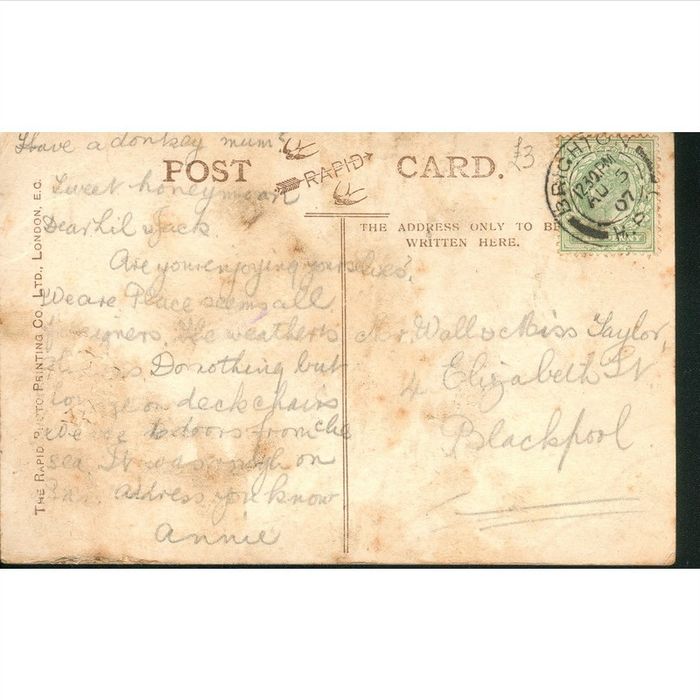 Have a donkey mum?
POST
RAPID
CARD.
£3
Sweet honeymoon
Dear Lil & Jack.
Are you enjoying yourselves,
We are Place seems all
the weather is
Do nothing but
on deck chairs
We are doors from the
sea. It was rough on
address you know
Annie
THE RAPID PHOTO PRINTING CO., LTD., LONDON, E.C.
THE ADDRESS ONLY TO BE
WRITTEN HERE.
Mr. Wall & Miss Taylor,
4 Elizabeth St
Blackpool.
BRIGHTON
12.10 PM
AU 3
07